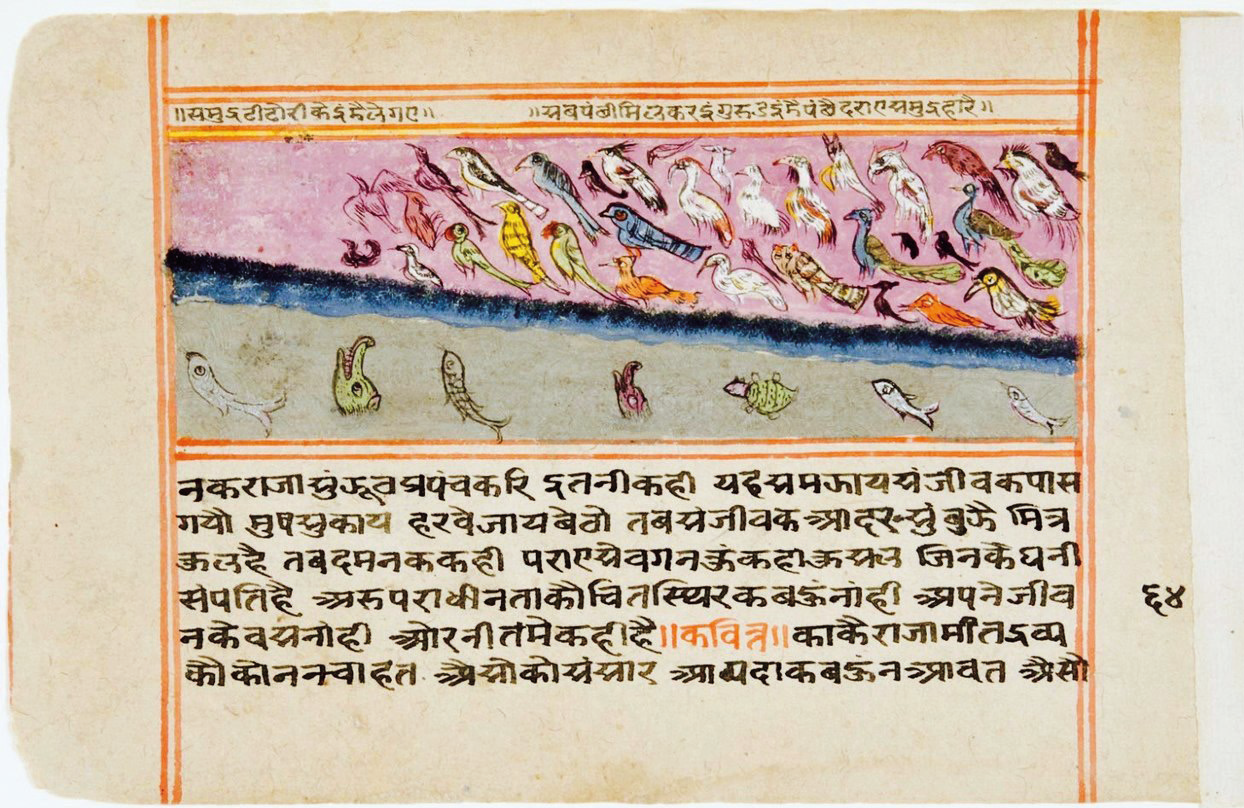 ॥समुद्रटीटोरीके इंमैलेगए॥ ॥सबपंषीमिलकर
नकराजासुं प्रपंचकरि इतनीकही यहसमजायसंजीवकपास
गयौ मुषसुकाय हरवेजायबेठो तबसंजीवक आदरसुंबुजै मित्र
कुसलहै तबदमनककही पराएसेवगनकुंकहांकुसल जिनकेघनी
संपतिहै अरुपराधीनताकौचितस्थिरकबऊंनांही अपनेजीव
नकेवसनांही ओरनीतमेकहीहै॥कवित्त॥काकैराजामींतद्रव्य
कौकोननचाहत अैसोकोसंसार आपदाकबऊंनआवत अैसौ
६४